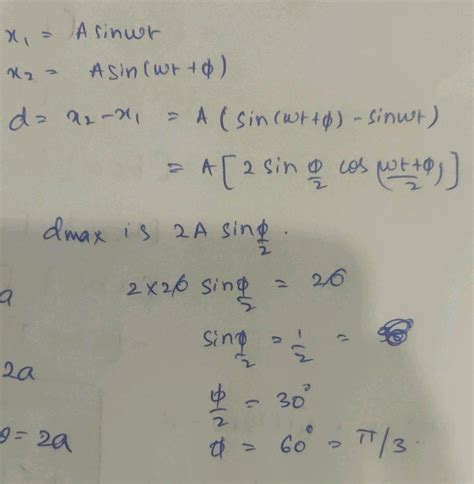 x₁ = A sinωt
x₂ = A sin(ωt+ϕ)
d = x₂-x₁ = A (sin(ωt+ϕ) - sinωt)
= A[2 sin ϕ/2 cos (ωt+ϕ/2)]
dmax is 2A sin ϕ/2.
a
2×26 sin ϕ/2 = 26
sin ϕ/2 = 1/2 =
2a
ϕ/2 = 30°
= 2a
ϕ = 60° = π/3.